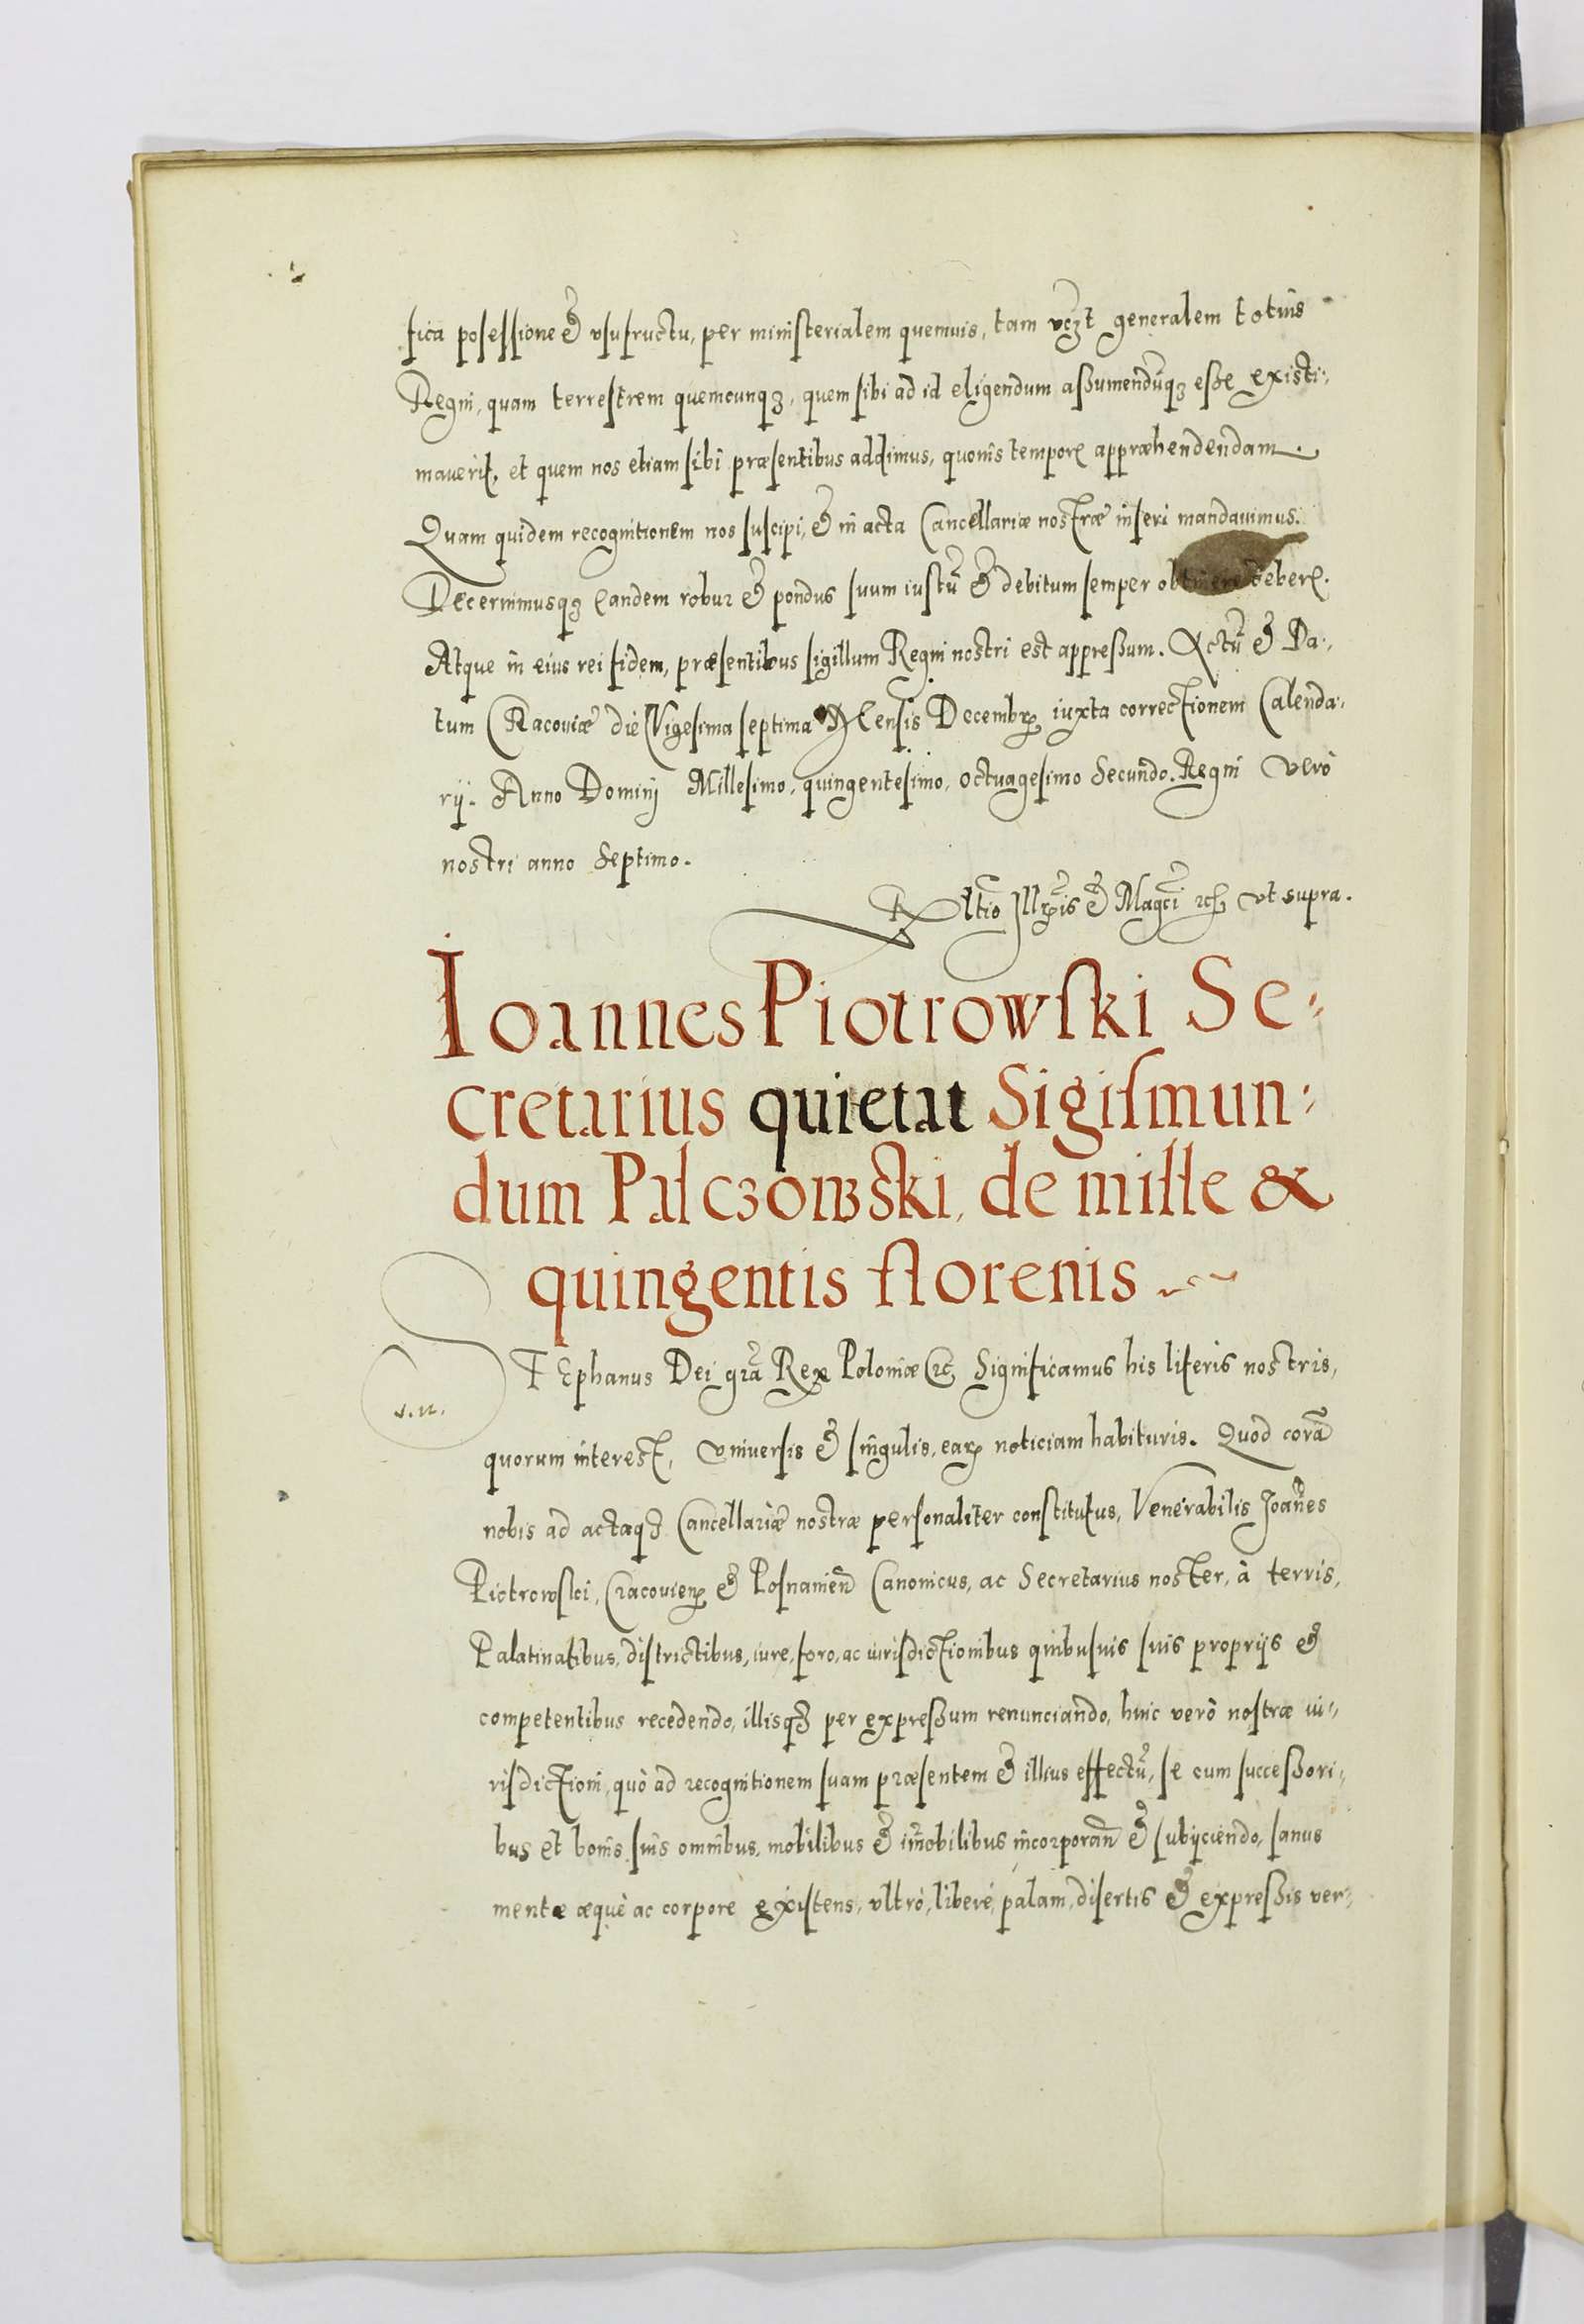 fica possessione & vsufructu, per ministerialem quemuis, tam vczt generalem totius
Regni, quam terrestrem quemcunqz, quem sibi ad id eligendum assumendũqz esse existi-
maverit, et quem nos etiam sibi præsentibus addimus, quouis tempore appræhendendam.
Quam quidem recognitionem nos suscipi, & in acta Cancellariæ nostræ inseri mandauimus.
Decernimusqz eandem robur & pondus suum iustũ & debitum semper obtinere debere.
Atque in eius rei fidem, præsentibus sigillum Regni nostri est appressum. Actũ & Da-
tum Cracoviæ die Vigesima septima Mensis Decembr iuxta correctionem Calenda-
rij. Anno Dominj Millesimo, quingentesimo, octuagesimo Secundo. Regni verò
nostri anno Septimo.
Rltio Illris & Magci etc ut supra.
Ioannes Piotrowski Se-
cretarius quietat Sigismun-
dum Palczowski, de mille &
quingentis florenis
STEphanus Dei gra Rex Poloniæ etc Significamus his literis nostris,
s.n.
quorum interest, vniversis & singulis, ear noticiam habituris. Quod corã
nobis ad actaqz Cancellariæ nostræ personaliter constitutus, Venerabilis Joañes
Piotrowski, Cracovien & Posnanieñ Canonicus, ac Secretarius noster, à terris,
Palatinatibus, districtibus, iure, foro, ac iurisdictionibus quibusuis suis proprijs &
competentibus recedendo, illisqz per expressum renunciando, huic verò nostræ iu-
risdictioni, quò ad recognitionem suam præsentem & illius effectũ, se cum successori-
bus et bonis suis omnibus, mobilibus & im̃obilibus incorporañ & subijciendo, sanus
mente æquè ac corpore existens, vltrò, liberè, palam, disertis & expressis ver-